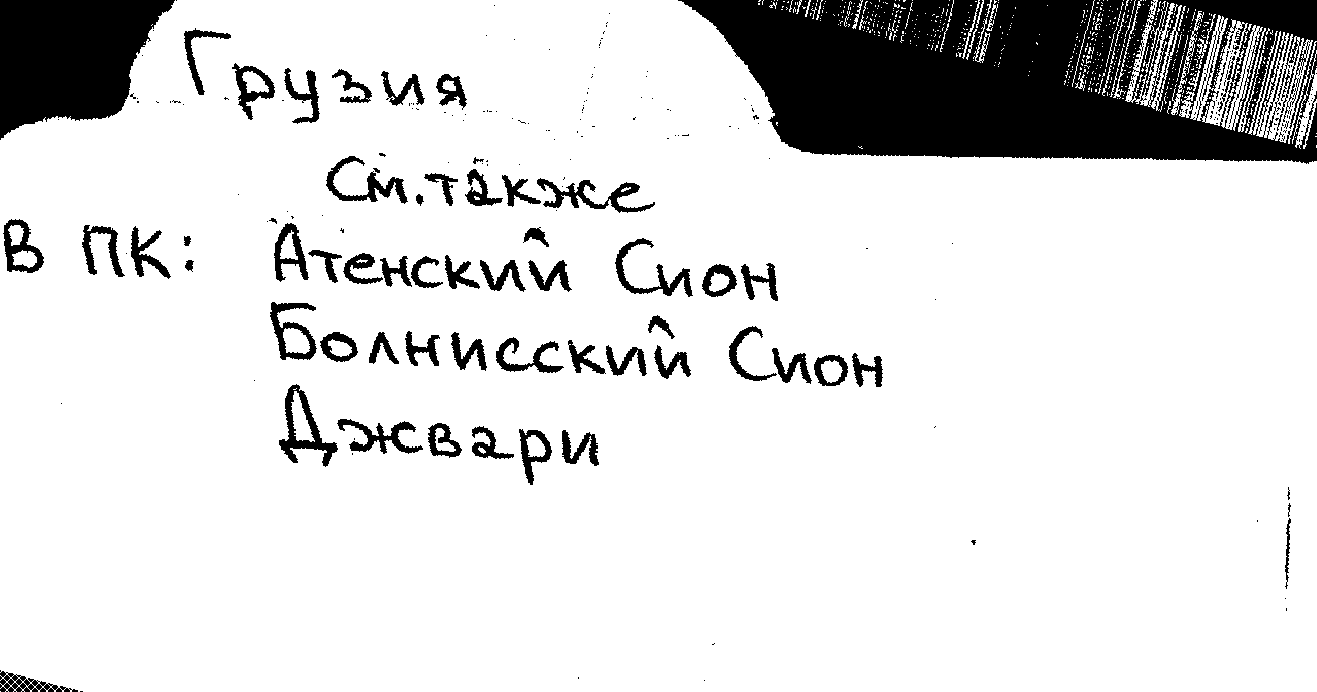 Грузия
См. также
В ПК: Атенский Сион
Болнисский Сион
Джвари